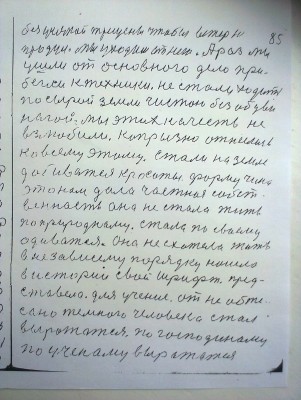 85
без всякой трещены чтобы ветер не
продул. Мы уходим от нее. А раз мы
ушли от основного дело при-
бегли к технике. не стали ходить
по сырой земли чистою без обуви
ногой. мы этих качеств не
взлюбили, капризно отнеслись
ко всему этому. стали на земле
добиватся красоты форму чина
это нам дала частная собст-
венность она не стала жить
по природному. стала по своему
одеватся. Она не схотела жить
в независему порядку нашла
в истории свой шрифт пред-
ставела. для учения. от не обте-
сано темного человека стал
выражатся, по господскому
по ученаму выражатся